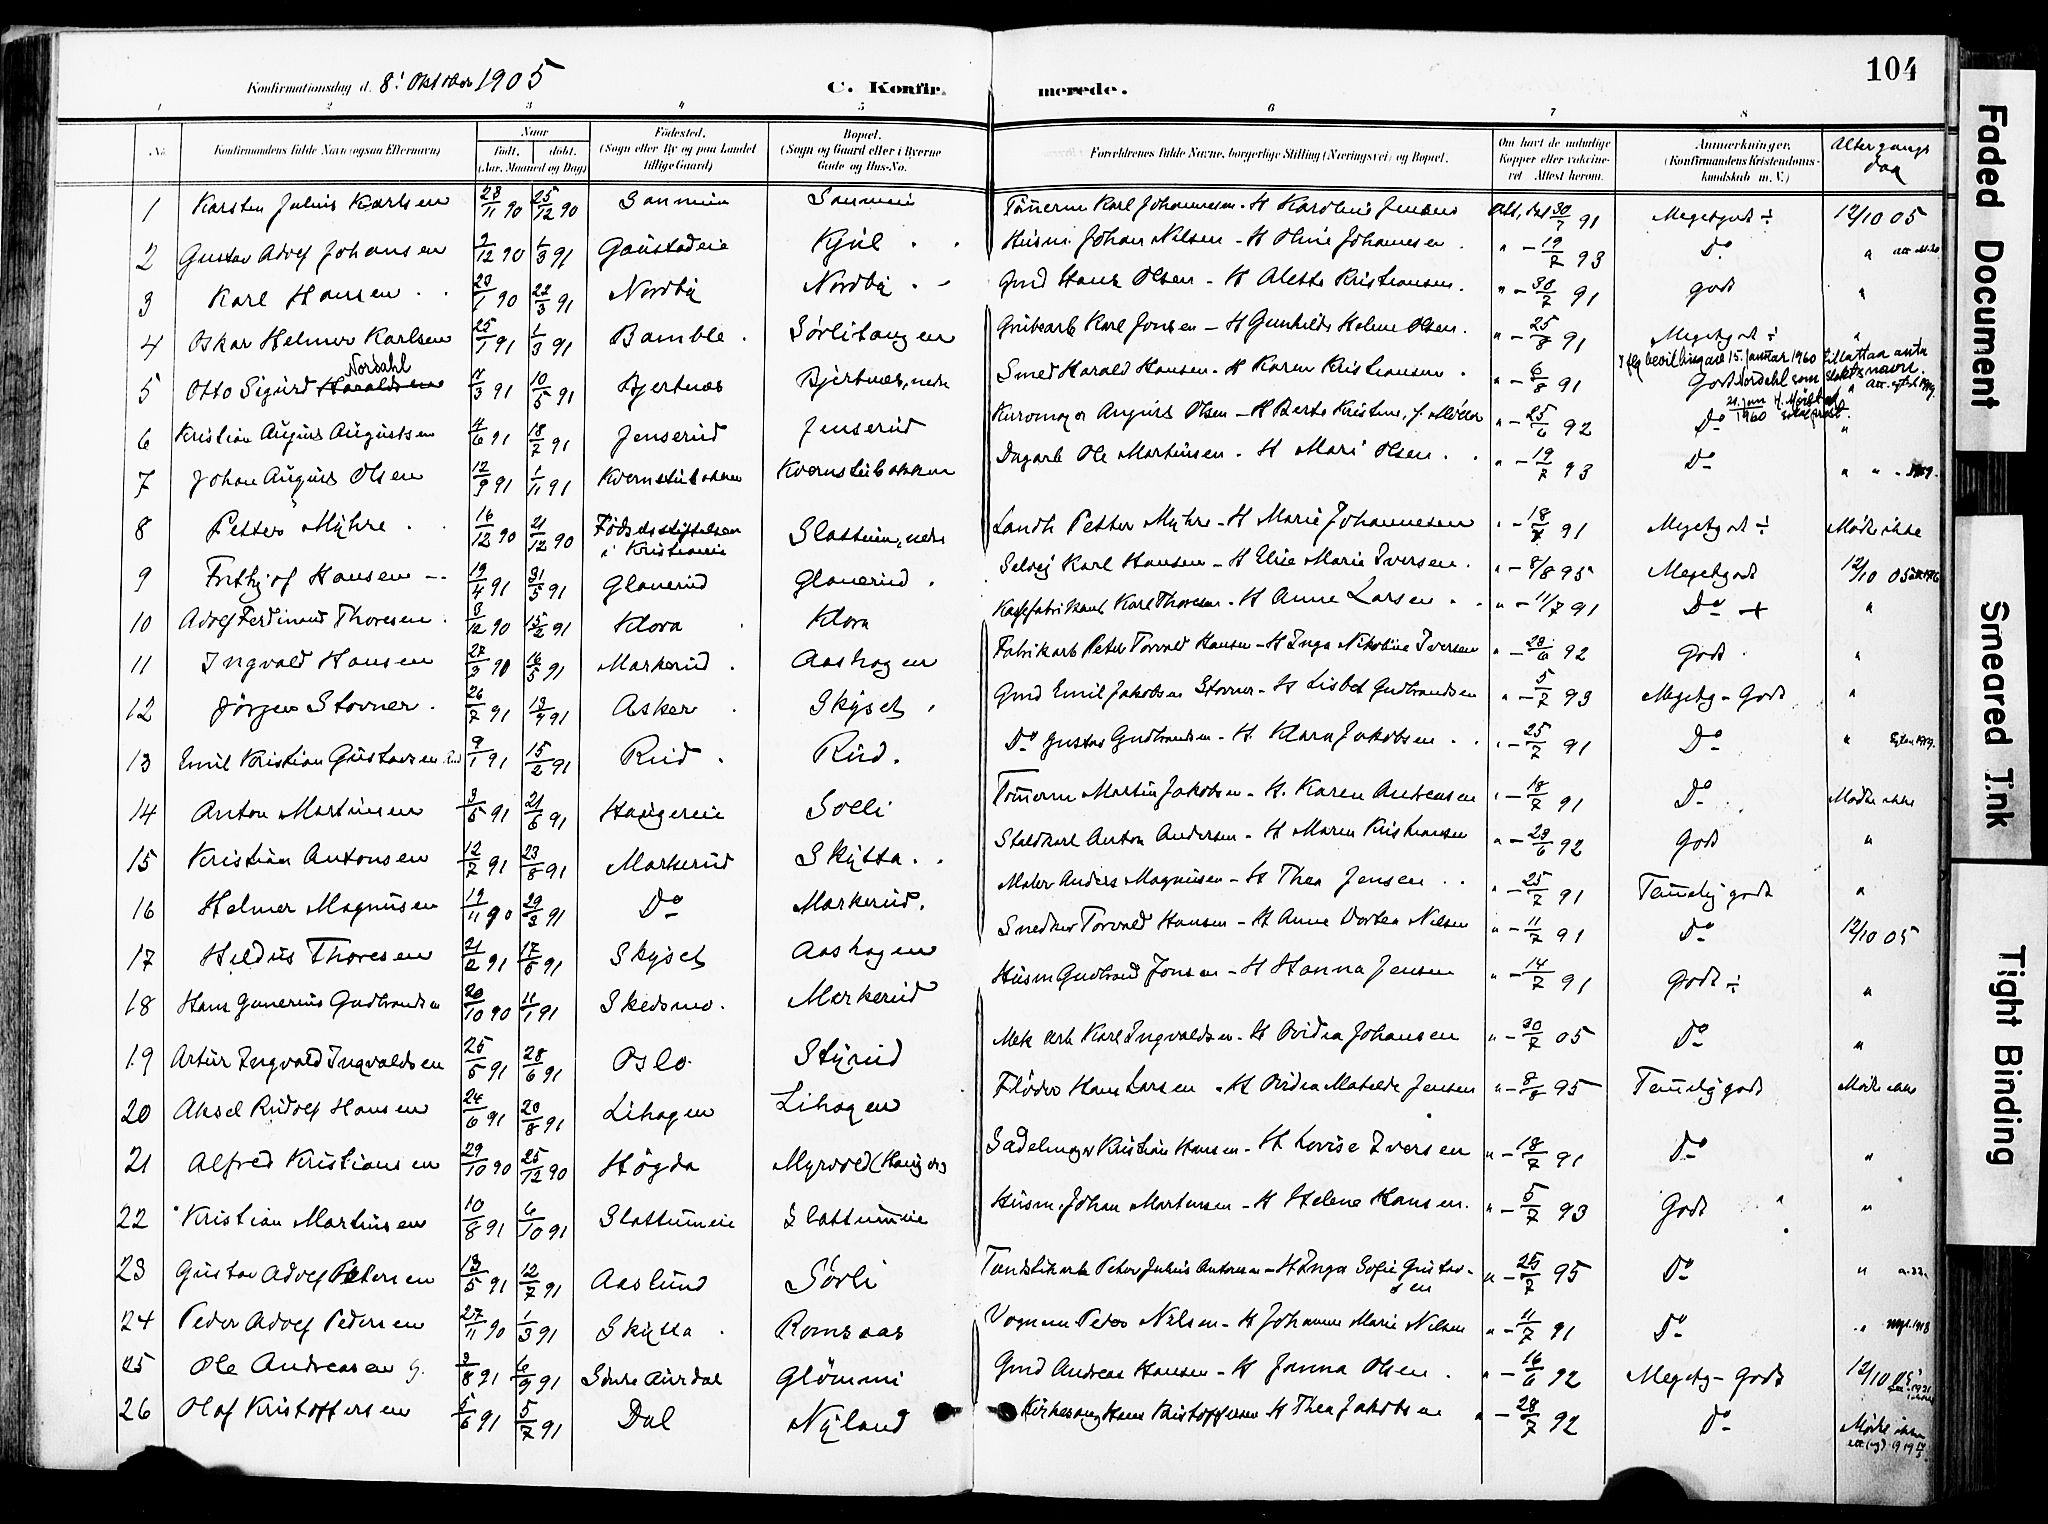 104
Konfirmationsdag d. 8. Oktober 1905 C. Konfirmerede.
1 2 3 4 5 6 7 8
No. Konfirmandens fulde Navn (ogsaa Efternavn) Naar Født. døbt. (Aar, Maaned og Dag) Fødested. (Sogn eller By og paa Landet tillige Gaard) Bopæl. (Sogn og Gaard eller i Byerne Gade og Hus-No. Forældrenes fulde Navne, borgerlige Stilling (Næringsvei) og Bopæl. Om havt de naturlige Kopper eller vakcineret Attest herom. Anmerkninger. (Konfirmandens Kristendomskundskab m. V.) Altergangs Dag
1 Karsten Julius Karlsen 28/11 90 25/12 90 Karl Johannesen - H Karoline Jensen 30/7 91 Megetgodt ÷ 12/10 05
2 Gustav Adolf Johansen 9/12 90 1/3 91 Gaustadeie Kjul Husm. Johan Nilsen - H Oline Johannesen " - 19/7 93 Do "
3 Karl Hansen 20/1 90 22/3 91 Nordby Nordby Gmd Hans Olsen - H Alette Kristiansen " - 30/7 91 godt "
4 Oskar Helmer Karlsen 25/1 91 1/3 91 Bamble Sørlitangen Grubearb Karl Jonsen - H Gunhilde Helene Olsen " - 25/8 91 Megetgodt ÷ "
Iflg bevilling av 15. januar 1960 tillattaa anta Nordahl som slektsnavn.
5 Otto Sigurd Haraldsen Nordahl 7/3 91 10/5 91 Bjertnæs Bjertnæs, nedre Smed Harald Hansen - H Karen Kristiansen " - 6/8 91 Godt "
21. jan 1960 H. sokneprest.
6 Kristian August Augustsen 4/6 91 18/7 91 Jenserud Jenserud August Olsen - H Berte Kristine, f. " - 25/6 92 Do "
7 Johan August Olsen 12/9 91 1/11 91 Kvernstubakken Kvernstubakken Dagarb Ole Martinsen - H Mari Olsen " - 19/7 93 Do "
8 Petter Myhre 16/12 90 21/12 90 Fødselsstiftelsen i Kristiania Slattum, nedre Landh Petter Myhre - H Marie Johannesen " - 18/7 91 Megetgodt ÷ Mødte ikke
9 Frithjof Hansen 19/4 91 31/5 91 Glanerud Glanerud Selvej Karl Hansen - H Elise Marie Iversen " - 8/8 95 Megetgodt 12/10 05
10 Adolf Ferdinand Thoresen 3/12 90 15/2 91 Klova Klova Karl Thoresen - H Anne Larsen " - 11/7 91 Do + "
11 Ingvald Hansen 27/3 90 16/5 91 Markerud Aashagen Fabrikarb Peter Torvald Hansen - H Inga Nikoline Iversen " - 28/6 92 Godt "
12 Jørgen Stovner 26/7 91 13/9 91 Asker Skyset Gmd Emil Jakobsen Stovner - H Lisbet Gudbrandsen " - 5/7 93 Megetg - Godt "
13 Emil Kristian Gustavsen Rud 9/1 91 15/2 91 Rud Rud Do Gustav Gudbrandsen - H Klara Jakobsen " - 25/7 91 Do "
14 Anton Martinsen 3/5 91 21/6 91 Haugereie Solli Tømerm Martin Jakobsen - H. Karen Andreasen " - 18/7 91 Do Mødte ikke
15 Kristian Antonsen 12/7 91 23/8 91 Markerud Skytta Staldkarl Anton Andersen - H Maren Kristiansen " - 28/6 92 Godt "
16 Helmer Magnusen 19/11 90 29/3 91 Do Markerud. Maler Anders Magnusen - H Thea Jensen " - 25/7 91 Temelig godt "
17 Hildus Thoresen 21/2 91 17/5 91 Skyset Aashagen Snedker Torvald Hansen - H Anne Dortea Nilsen " - 11/7 91 Do 12/10 05
18 Hans Gunerius Gudbrandsen 20/10 90 11/1 91 Skedsmo. Markerud Husm Gudbrand Jonsen - H Hanna Jensen " - 14/7 91 Godt ÷ "
19 Artur Ingvald Ingvaldsen 25/5 91 28/6 91 Oslo Styrud Mek arb Karl Ingvaldsen - H Ovidia Johansen " - 30/7 05 Do "
20 Aksel Rudolf Hansen 24/6 91 20/8 91 Lihagen Lihagen Fløder Hans Larsen - H Ovidia Matilde Jensen " - 8/8 95 Temelig godt Mødte ikke
21 Alfred Kristiansen 29/10 90 25/12 90 Høgda Myrvold Sadelmager Kristian Hansen - H Lovise Iversen " - 18/7 91 Do "
22 Kristian Martinsen 10/8 91 6/10 91 Slattumeie Slattumeie Husm. Johan Martinsen - H Helene Hansen. " - 5/7 93 Godt "
23 Gustav Adolf Petersen 13/5 91 12/7 91 Aaslund Sørli Peter Julius Antonsen - H Inga Sofie Gustavsen " - 25/7 95 Do "
24 Peder Adolf Pedersen 27/11 90 1/3 91 Skytta Romsaas Vognm Peder Nilsen - H Johanne Marie Nilsen " - 11/7 91 Do "
25 Ole Andreasen 3/8 91 6/9 91 Søndre Aurdal Glømmi Gmd Andreas Hansen - H Janna Olsen " - 16/6 92 Megetg - Godt 12/10 05
26 Olaf Kristoffersen 5/6 91 5/7 91 Dal Nyland Kirkesang Hans Kristoffersen - H Thea Jakobsen " - 28/7 92 Do Mødte ikke
Faded Document
Smeared Ink
Tight Binding